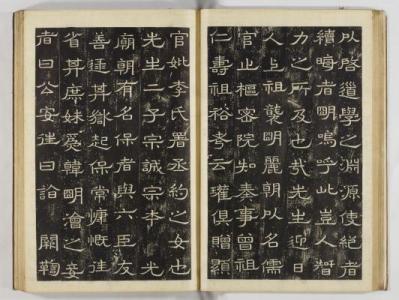 以啓道學之淵源使絶者
續晦者明嗚呼此豈人智
力之所及也哉先生迎日
人上祖襲明麗朝以名儒
官止樞密院知奏事曾祖
仁壽祖裕考云瓘俱贈顯
官妣李氏署丞約之女也
先生二子宗誠宗本光
廟朝有名保者與六臣友
善逮其獄起保常慷慨往
省其庶妹爲韓明澮之妾
者曰公安往曰詣 闕鞫